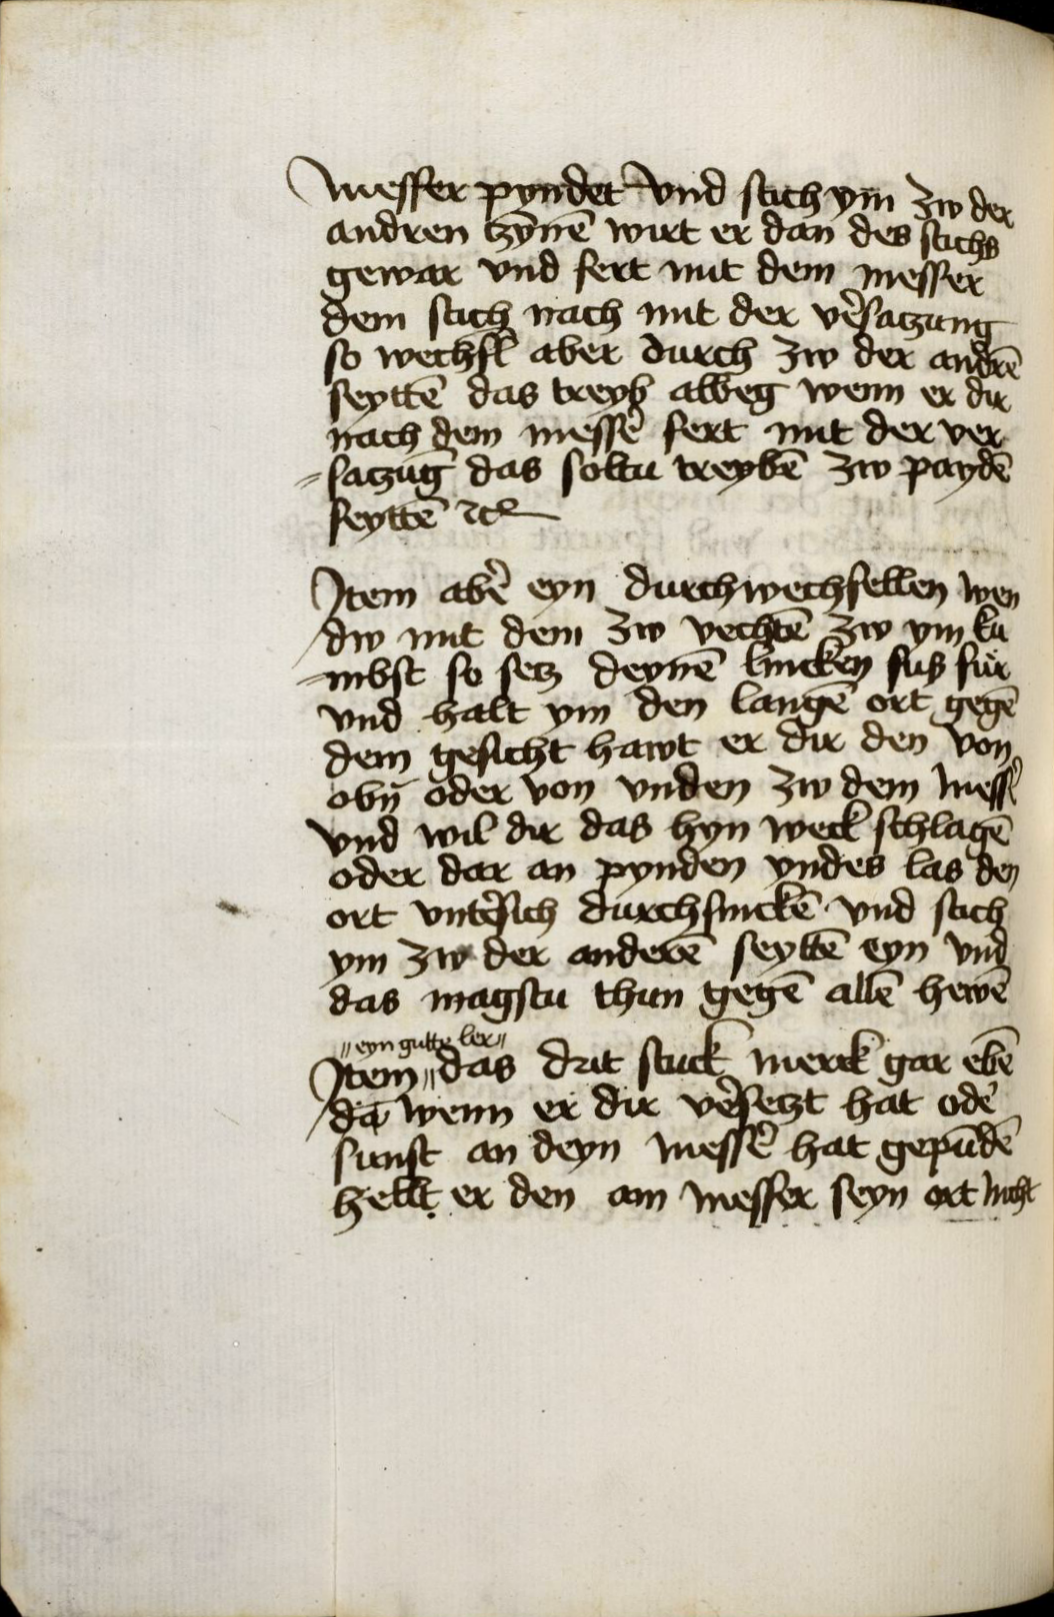 messer pyndet vnd stich ym zw der
andren tzynē wirt er dan des stichs
gewar vnd fert mit dem messer
dem stich nach mit der vẽsatzung
so wechsl aber durch zw der andrē
seyttē das treyb albeg wenn er dir
nach dem messẽ fert mit der ver
=satzūg das soltu treybē zw paydē
seyttē ꝛc
Item abẽ eyn durchwechsellen wen
dw mit dem zw vechtē zw ym ku
-mbst so setz deynē lincken fuß für
vnd halt ym den langē ort gegē
dem gesicht hawt er dir den von
obñ oder von vnden zw dem messẽ
vnd wil dir das hyn weck schlagē
oder dar an pynden yndes las den
ort vntẽsich durchsinckē vnd stich
ym zw der anderē seyttē eyn vnd
das magstu thun gegē allē hewē
"eyn gutte ler"
Item "das drit stuck merck gar ebē
dā wenn er dir vẽsetzt hat odẽ
sunst an deyn messẽ hat gepūdē
hellt er den am messer seyn ort nicht